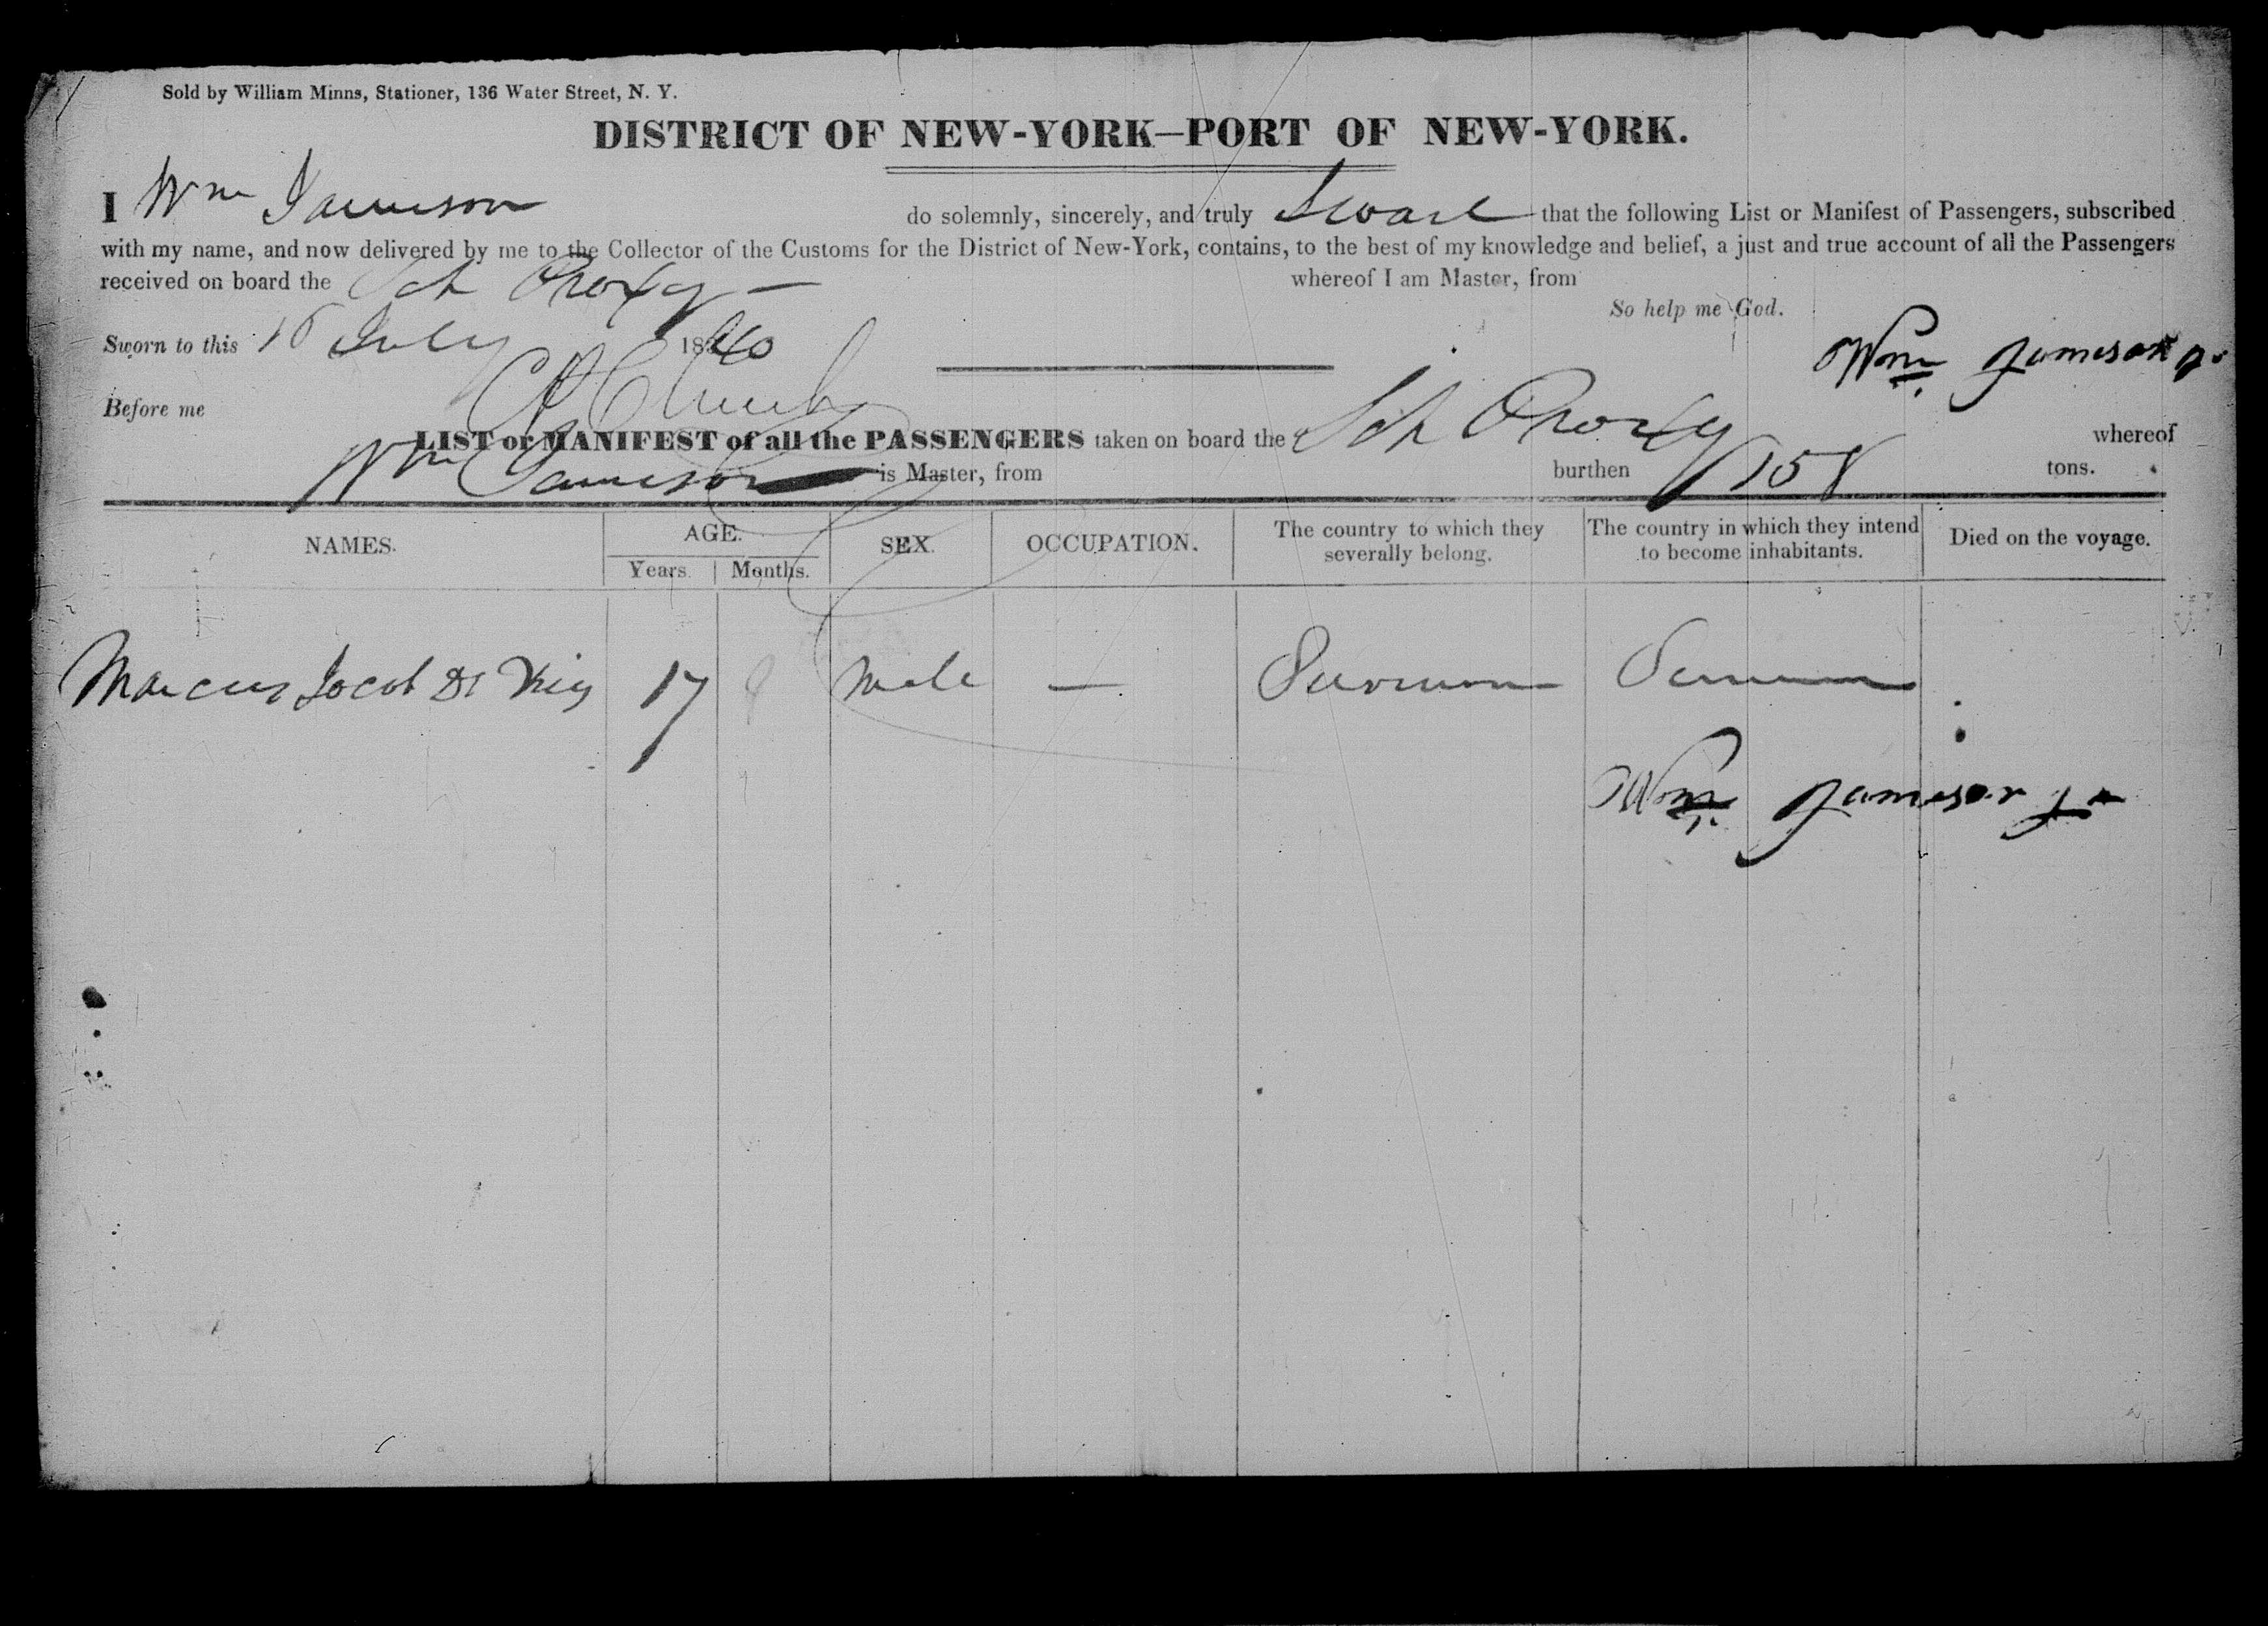 Sold by William Minns, Stationer, 136 Water Street, N. Y.
DISTRICT OF NEW-YORK—PORT OF NEW-YORK.
I Wm Jameson do solemnly, sincerely, and truly Swear that the following List or Manifest of Passengers, subscribed
with my name, and now delivered by me to the Collector of the Customs for the District of New-York, contains, to the best of my knowledge and belief, a just and true account of all the Passengers
received on board the Sch Proxy — whereof I am Master, from
So help me God.
Sworn to this 16 July 1840
Wm Jameson Jr
Before me
LIST or MANIFEST of all the PASSENGERS taken on board the Sch Proxy whereof
Wm Jameson is Master, from burthen 158 tons.
NAMES. AGE. SEX. OCCUPATION. The country to which they severally belong. The country in which they intend to become inhabitants. Died on the voyage.
Years. Months.
Marcus Jacob De Vries 17 male — Surinam Surinam
Wm Jameson Jr